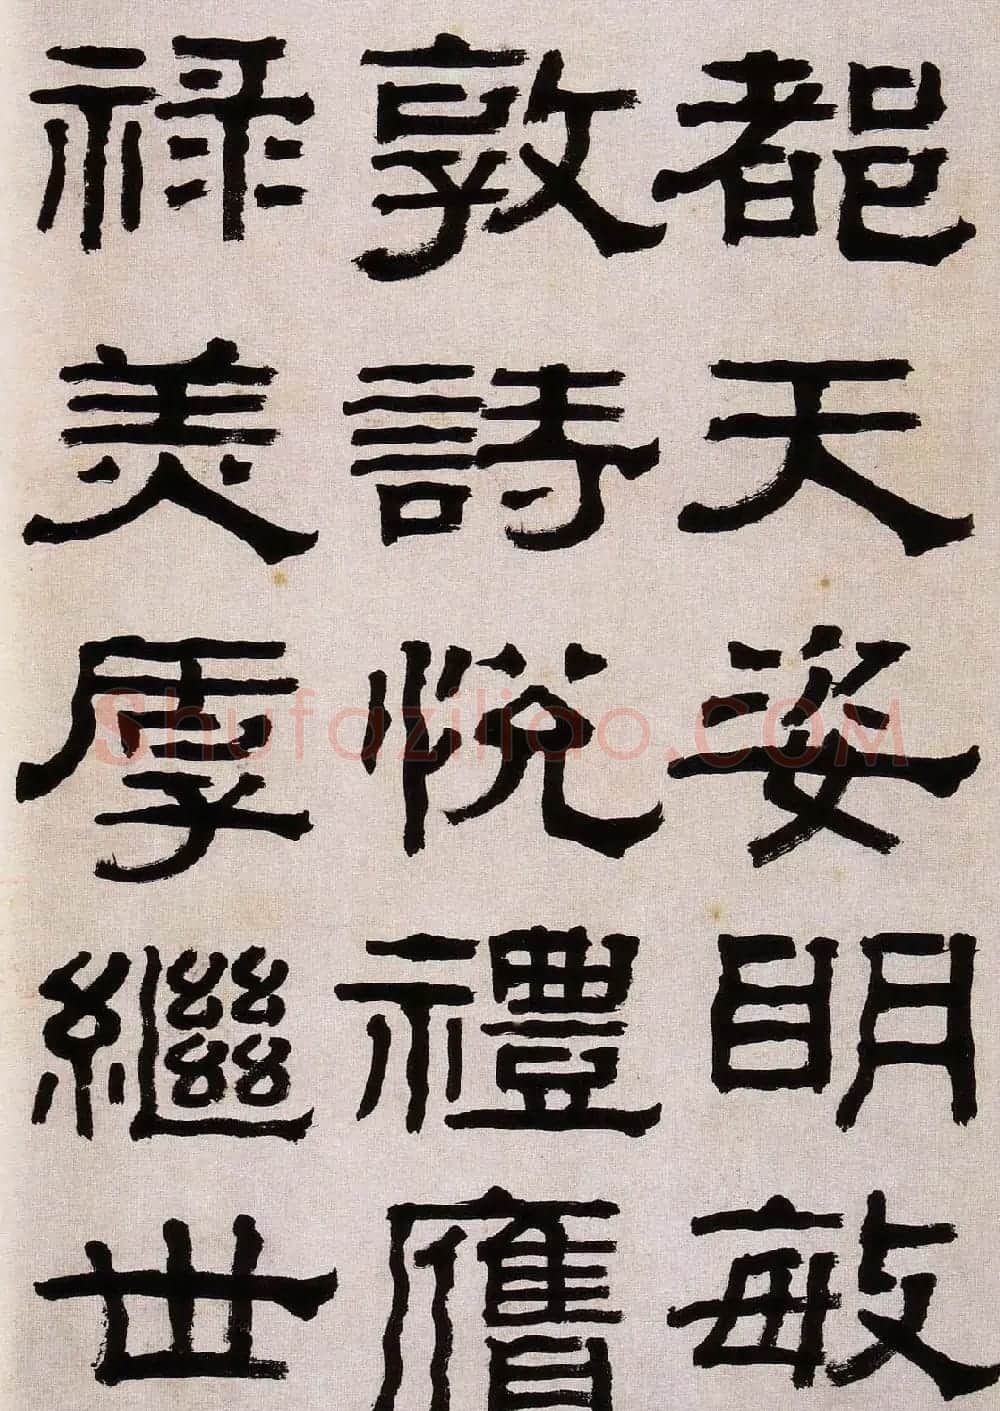 都天姿明敏
敦詩悅禮膺
祿美厚繼世
Shufaziliao.COM